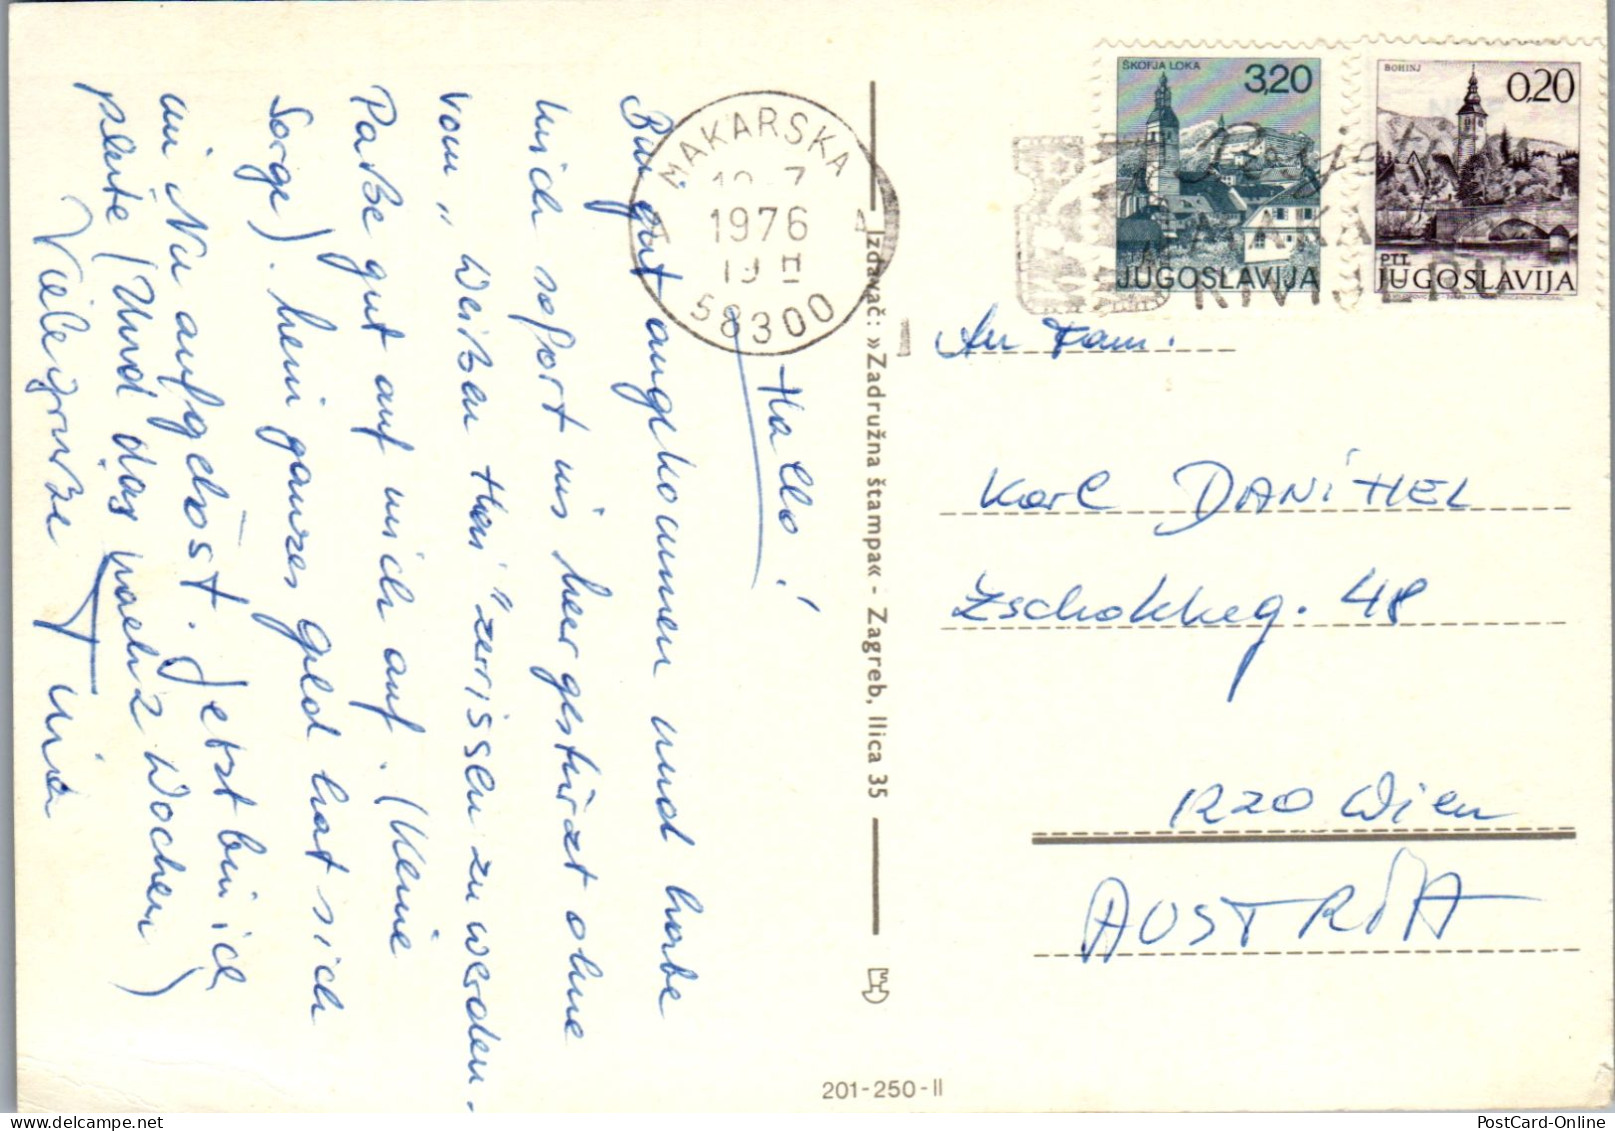 Hallo!
Bin gut angekommen und habe
mich sofort ins Meer gestürzt ohne
vom „Weißen Hai" zerrissen zu werden.
Passe gut auf mich auf. (Keine
Sorge). Mein ganzes Geld hat sich
in Na aufgelöst. Jetzt bin ich
pleite (Und das nach 2 Wochen)
Viele Grüße
MAKARSKA
1976
58300
Izdavač: »Zadružna štampa« - Zagreb, Ilica 35
201-250-II
ŠKOFJA LOKA
3,20
JUGOSLAVIJA
BOHINJ
0,20
PTT
JUGOSLAVIJA
RIVIJERU
An Fam.
Karl DANIHEL
Zschokkeg. 48
1220 Wien
AUSTRIA
PostCard-Online